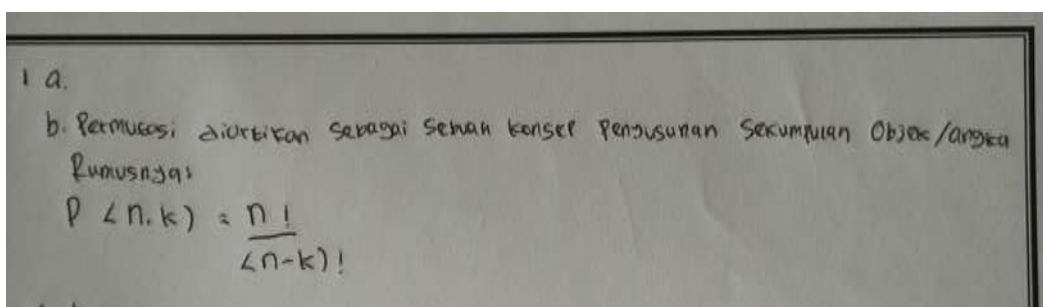 1 a.
b. Permutasi diartikan sebagai sebuah konsep penyusunan sekumpulan Objek/angka
Rumusnya:
P (n.k) = n!
(n-k)!